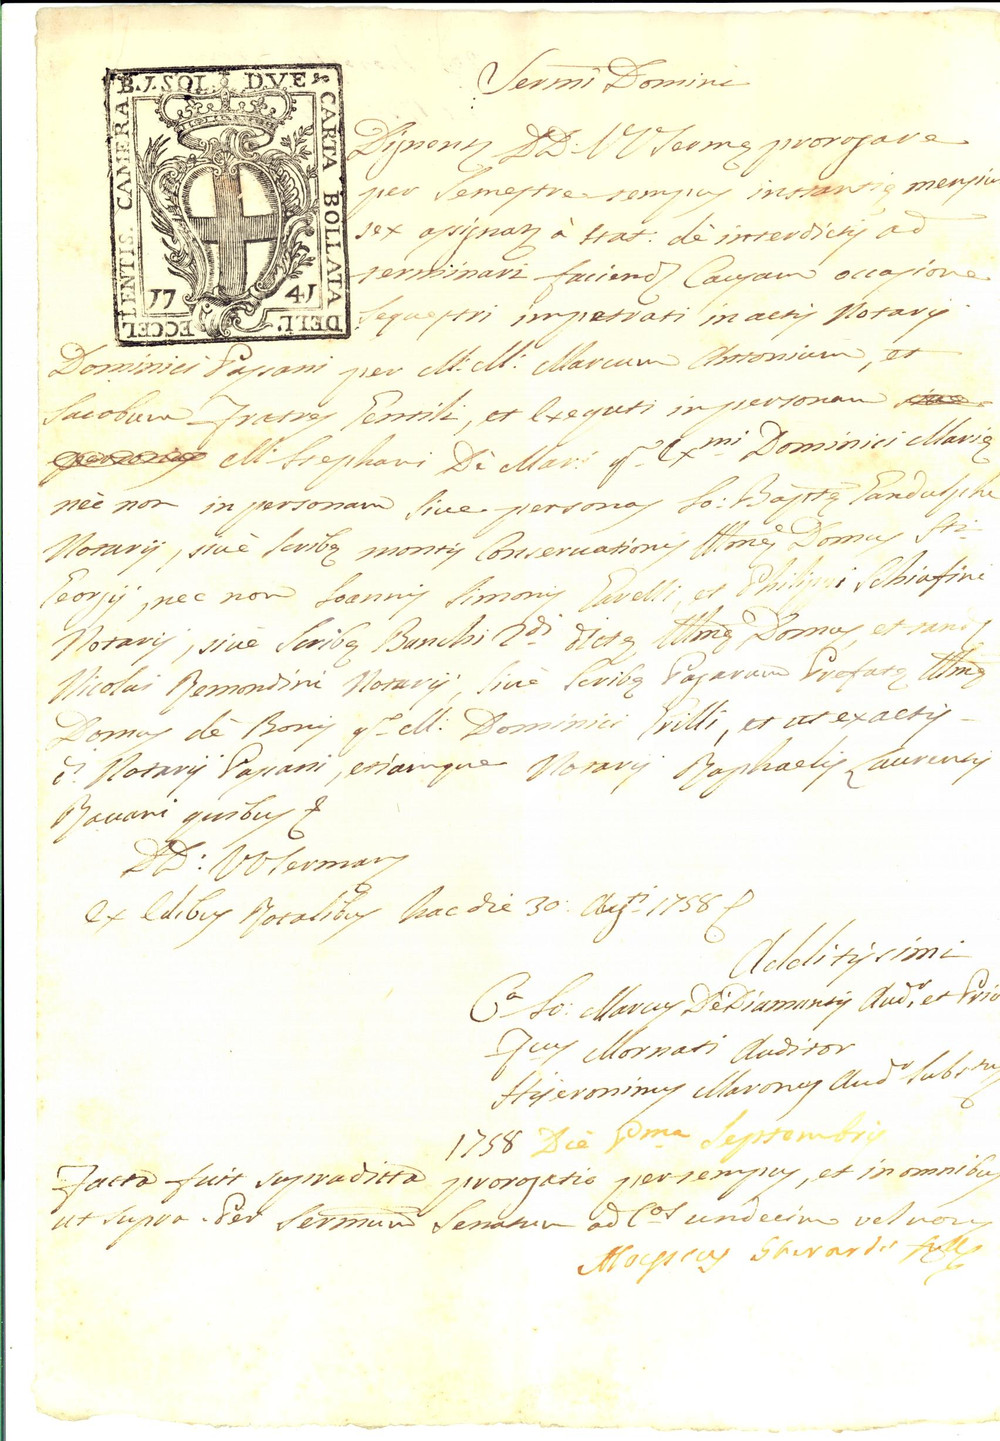 B. J. SOL. DVE
CARTA BOLLATA
DELL'
ECCEL
LENTIS. CAMERA
17 41
Sermi Domini
DD: VV Sermę prorogare
per Semestre tempus instantię mensiu
sex assignat à stat. dè interdictis ad
terminari faciend Causam occasione
Sequestri impetrati in actis Notarij
Dominici Passani per M. M. Marcum Antonium, et
Jacobum Fratres Gentili, et exequti in personam
M. Stephani Dè Mari q. Exmi Dominici Marię
nèc non in personam sive personas Jo: Baptę Gandulphi
Notarij, sivè Scribę montis Conservationis Illmę Domus Sti
Georgij, nec non Joannis Simonis Garelli, et Philippi Schiafini
Notarij, sivè Scribę Banchi 2di dictę Illmę Domus, et
Nicolai Remondini Notarij, sivè Scribę Pagarum Prefatę Illmę
Domus dè Bonis q. M. Dominici Grilli, et ut ex actis
d. Notarij Passani, etiamque Notarij Raphaelis Laurentij
Ravani quibus
DD: VV Sermarum
Ex Edibus Rotalibus hac die 30: Augti 1758
Additissimi
Jo: Marcus DèDiamantis Audr. et Prior
Mornati Auditor
Hyeronimus Maronus Audr Substus
1758 Diè Pma Septembris
Facta fuit supradicta prorogatio per tempus, et in omnibus
ut supra. Per Sermum Senatum ad Cos undecim vel novem